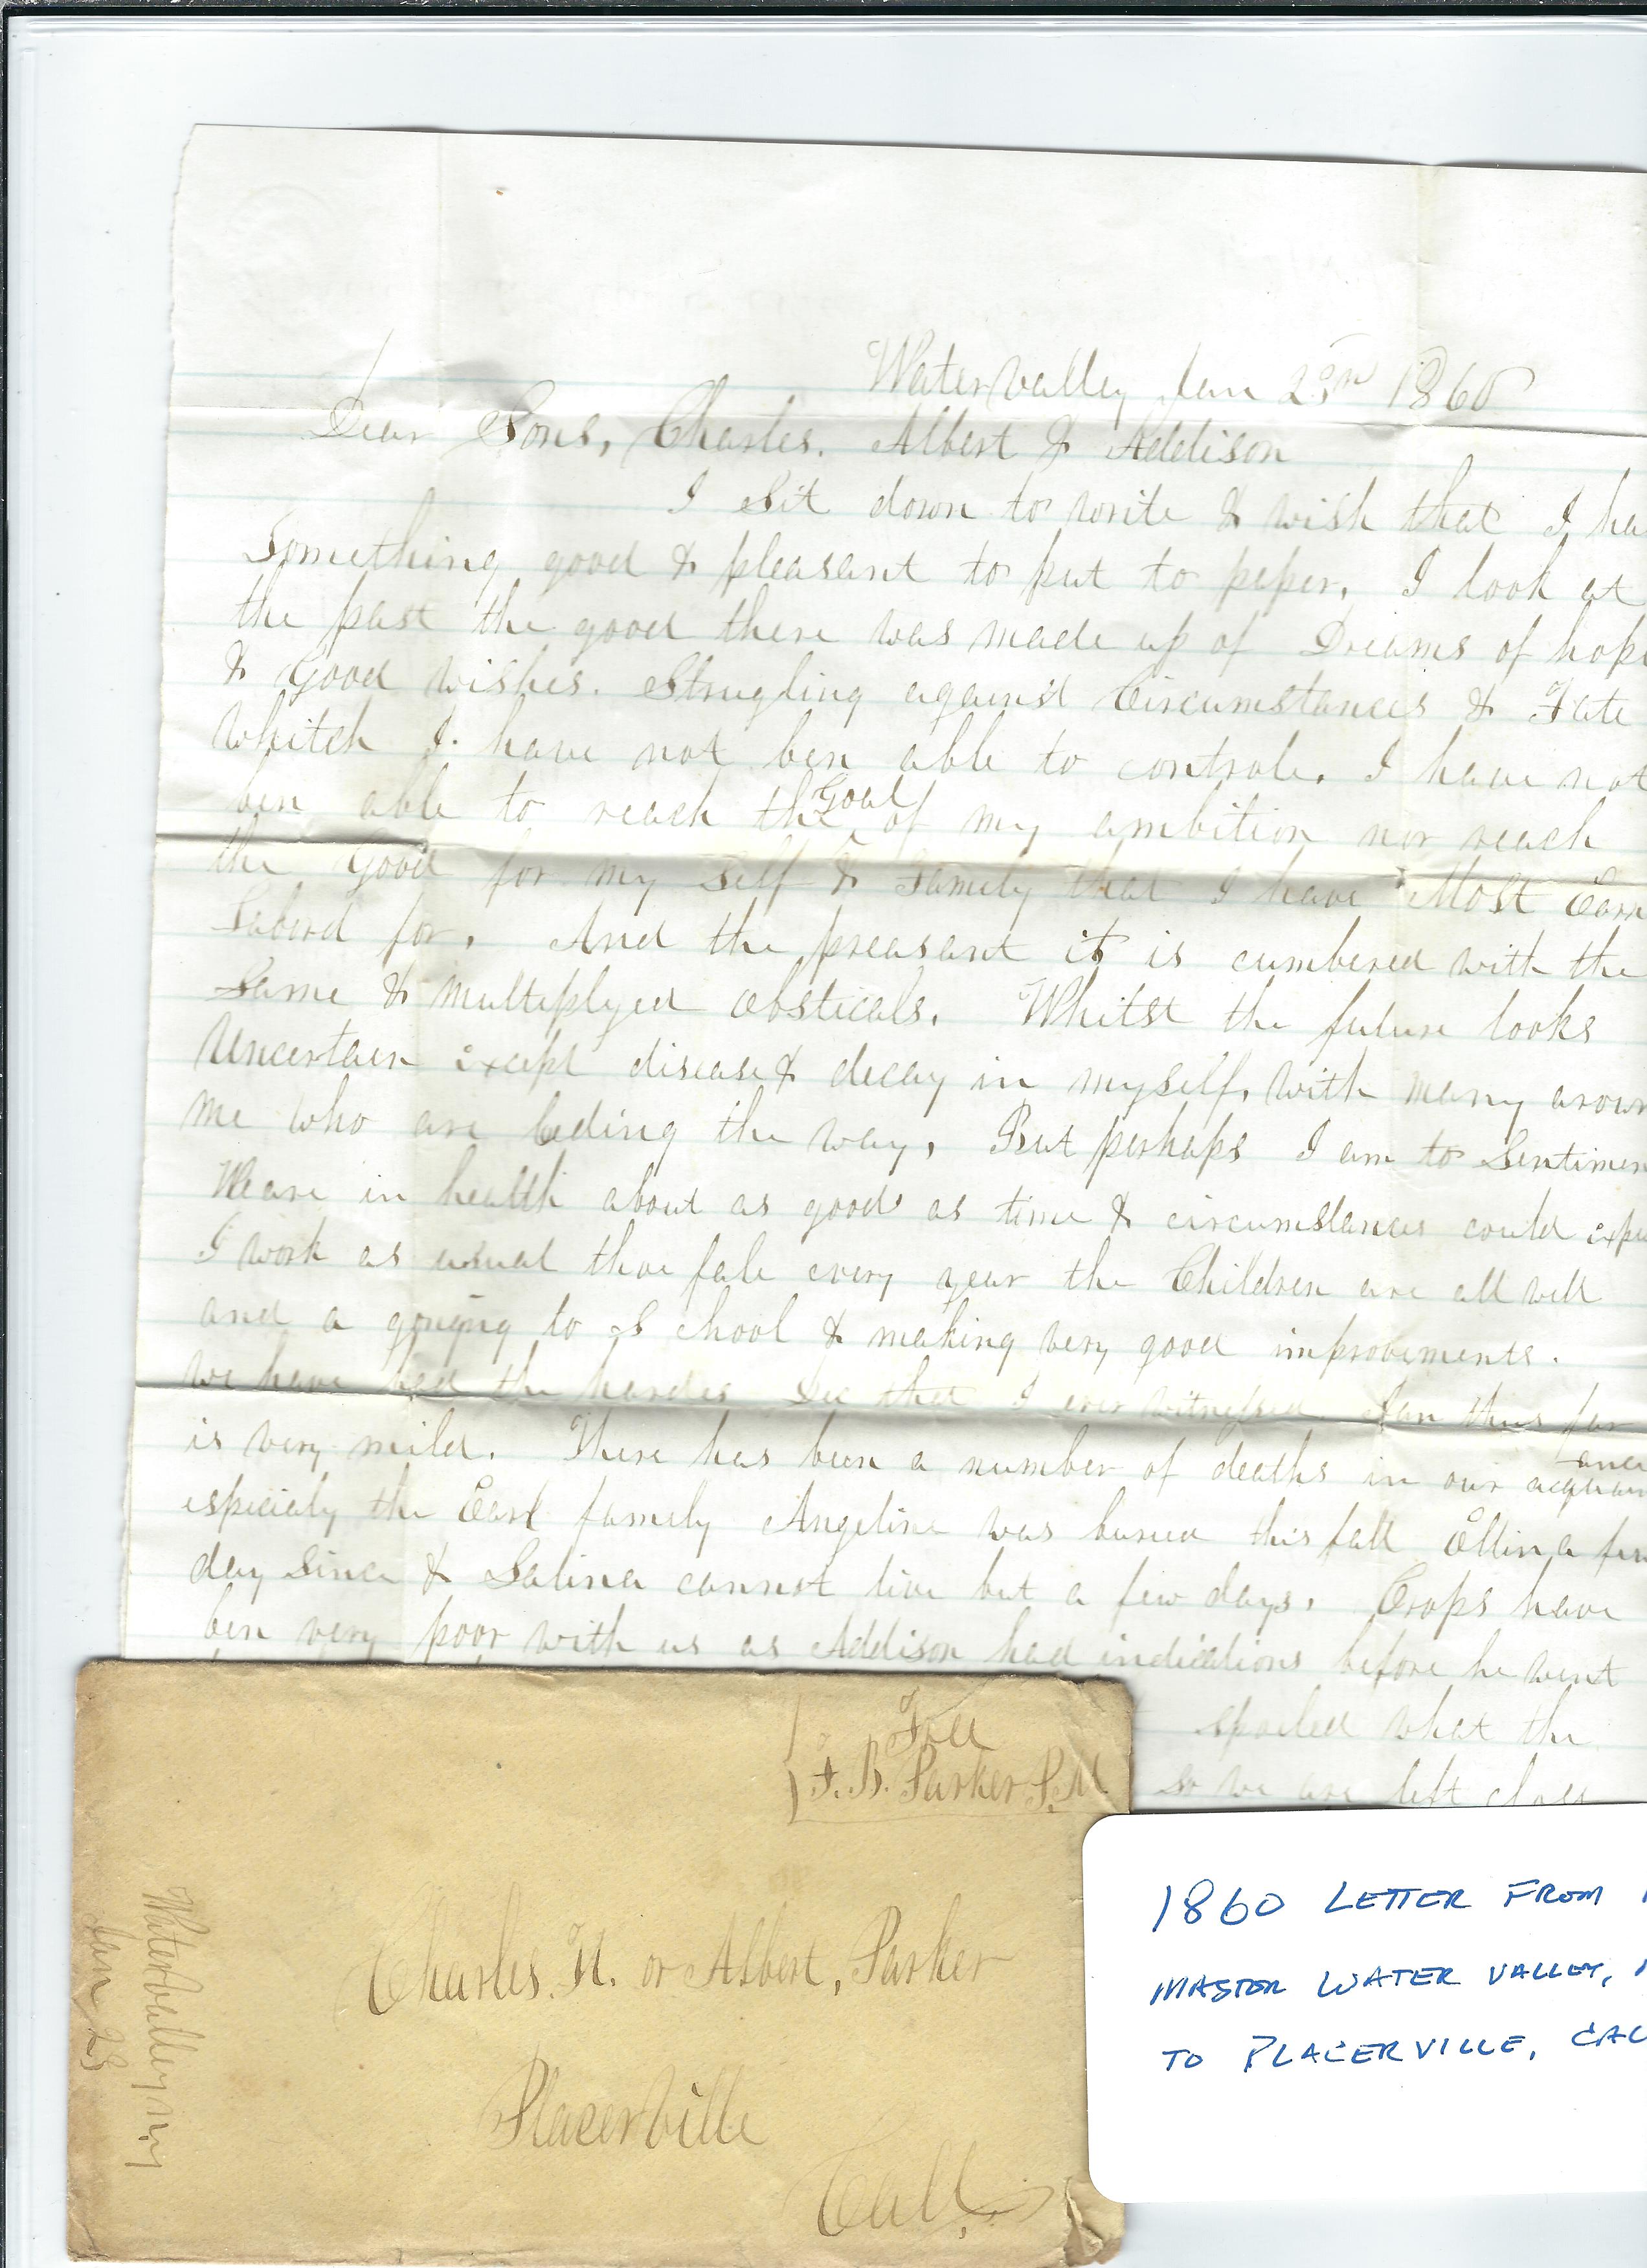 Watervalley Jan 23rd 1860
Dear Sons, Charles. Albert & Addison
I Sit down to write & wish that I ha
Something good & pleasant to put to paper. I look at
the past the good there was made up of Dreams of hope
& Good wishes. Strugling against Circumstances & Fate
whitch I have not ben able to controle. I have not
ben able to reach the Goal of my ambition nor reach
the Good for my Self & Family that I have Most Earn
Labord for. And the preasant it is cumbered with the
Same & multeplyed obsticals. Whilst the future looks
Uncertain except disease & decay in myself, with many aroun
me who are leding the way. But perhaps I am to Sentimen
We are in health about as good as time & circumstances could expe
I work as usual thoe fale every year the Children are all well
and a going to School & making very good improvements.
we have had the hardes Dec that I ever witnessed Jan thus far
is very mild. There has been a number of deaths in our acquain
especialy the Earl family Angeline was buried this fall Ellin a few
day Since & Salina cannot live but a few days. Crops have
ben very poor with us as Addison had indications before he went
spoiled what the
so we are left close
Free
F. B. Parker P.M.
Watervalley N.Y
Jan 23
Charles. H. or Albert, Parker
Placerville
Call.
1860 LETTER FROM
MASTER WATER VALLEY,
TO PLACERVILLE, CAL